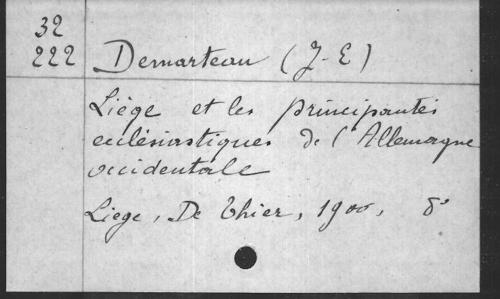 32
222
Demarteau (J-E)
Liège et les principautés
ecclésiastiques de l'Allemagne
occidentale
Liège, De Thier, 1900, 8°